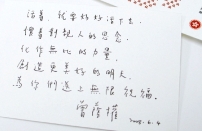 活着，就要好好活下去，
懷着對親人的思念，
化作無比的力量，
創造更美好的明天，
為你們送上無限祝福。
曾蔭權
2008.6.4